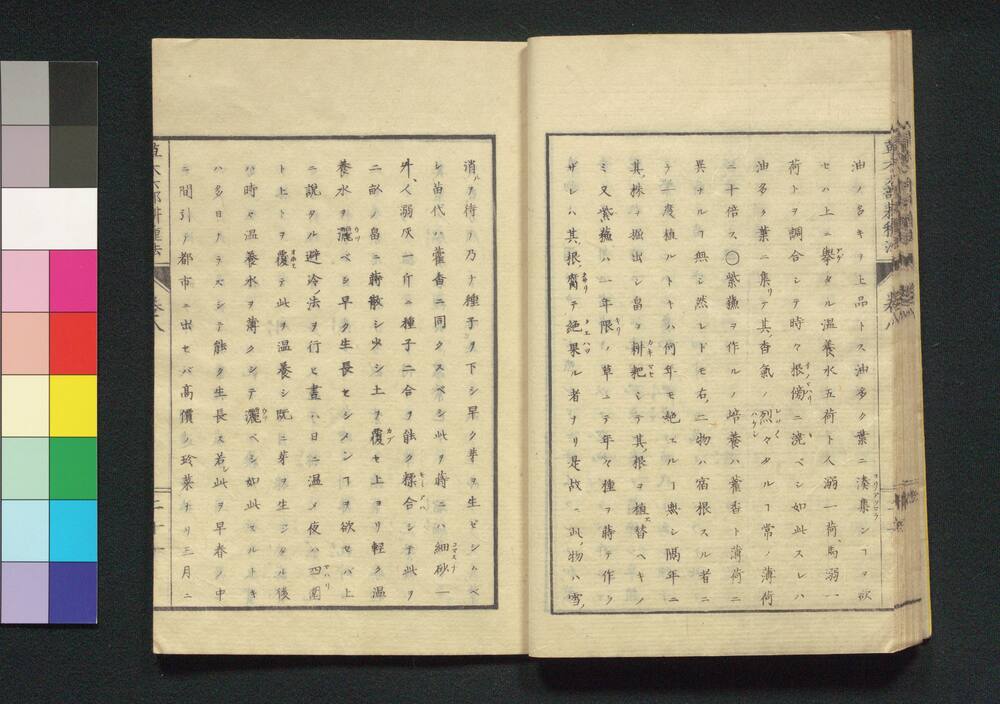 油ノ多キヲ上品トス油多ク葉ニ湊集ンコヲ欲
セハ上ニ擧タル温養水五荷ト人溺一荷、馬溺一
荷トヲ調合シテ時々根傍ニ澆ベシ如此スレハ
油多ク葉ニ集リテ其香氣ノ烈々タルコ常ノ薄荷
ニ十倍ス○紫蘓ヲ作ルノ培養ハ藿香ト薄荷ニ
異ナルコ無シ然レドモ右二物ハ宿根スル者ニ
テ一度植ルトキハ何年モ絶エルコ無シ隔年ニ
其株ヲ掘出シ畠ヲ耕耙シテ其根ヲ植替ベキノ
ミ又紫蘓ハ一年限ノ草ニテ年々種ヲ蒔テ作ラ
ザレハ其根腐テ絶果ル者ナリ是故ニ此物ハ雪
消ルヲ待テ乃ナ種子ヲ下シ早ク芽ヲ生ゼシムベ
シ苗代ハ藿香ニ同クスベシ此ヲ蒔ニハ細砂一
升、人溺灰一斤ニ種子二合ヲ能ク糅合シテ此ヲ
二畝ノ畠ニ蒔散シ少シ土ヲ覆セ上ヨリ輕ク温
養水ヲ灑ベシ早ク生長セシメンコヲ欲セバ上
ニ說タル避冷ノ法ヲ行ヒ晝ハ日ニ温メ夜ハ四圍
ト上トヲ覆テ此ヲ温養シ既ニ芽ヲ生ジタル後
ハ時々温養水ヲ薄クシテ灑ベシ如此スルトキ
ハ多日ナラズシテ能ク生長ス若シ此ヲ早春ノ中
ニ間引テ都市ニ出セバ高價ノ珍菜ナリ三月ニ